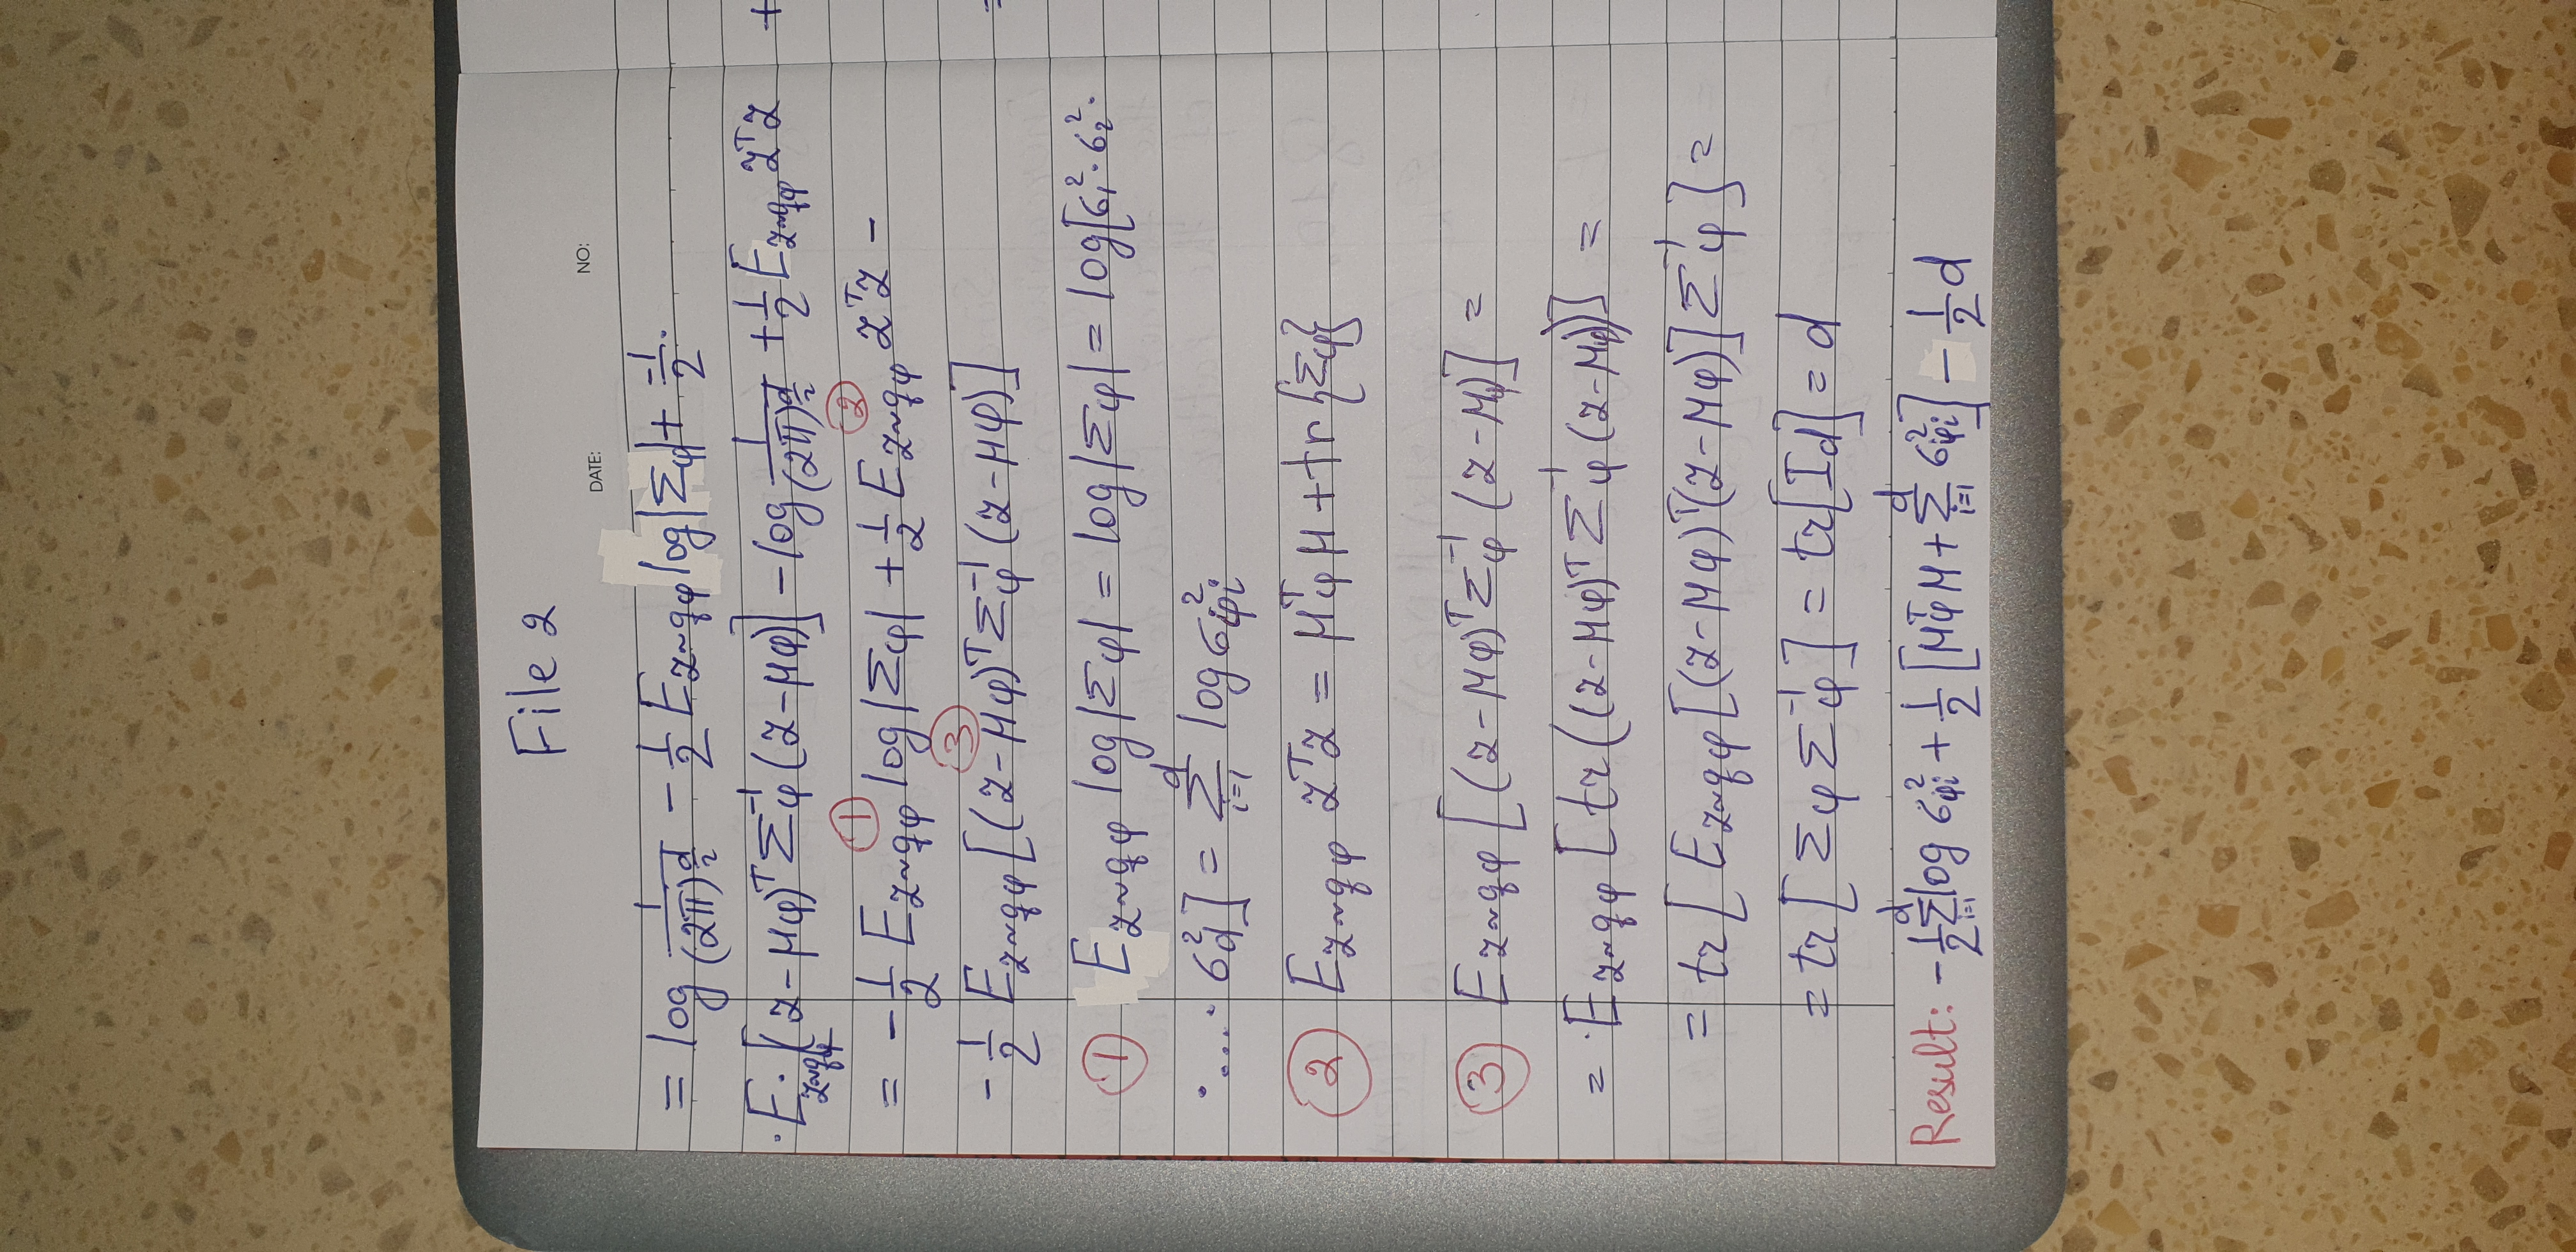 File 2
DATE: NO:
= log 1/(2π)^{d/2} - 1/2 E_{z~qφ} log|Σφ| + -1/2 ·
· E_{z~qφ} · [(z-μφ)^T Σφ^{-1} (z-μφ)] - log 1/(2π)^{d/2} + 1/2 E_{z~qφ} z^T z +
= - 1/2 E_{z~qφ} ① log|Σφ| + 1/2 E_{z~qφ} ② z^T z -
- 1/2 E_{z~qφ} ③ [(z-μφ)^T Σφ^{-1} (z-μφ)] =
① E_{z~qφ} log|Σφ| = log|Σφ| = log[σ_1^2 · σ_2^2 ·
· .... · σ_d^2] = Σ_{i=1}^{d} log σ_{φi}^2
② E_{z~qφ} z^T z = μφ^T μ + tr{Σφ}
③ E_{z~qφ} [(z-μφ)^T Σφ^{-1} (z-μφ)] =
= · E_{z~qφ} [tr((z-μφ)^T Σφ^{-1} (z-μφ))] =
= tr[E_{z~qφ} [(z-μφ)^T (z-μφ)] Σφ^{-1}] =
= tr[Σφ Σφ^{-1}] = tr[Id] = d
Result: - 1/2 Σ_{i=1}^{d} log σ_{φi}^2 + 1/2 [μφ^T μ + Σ_{i=1}^{d} σ_{φi}^2] - 1/2 d